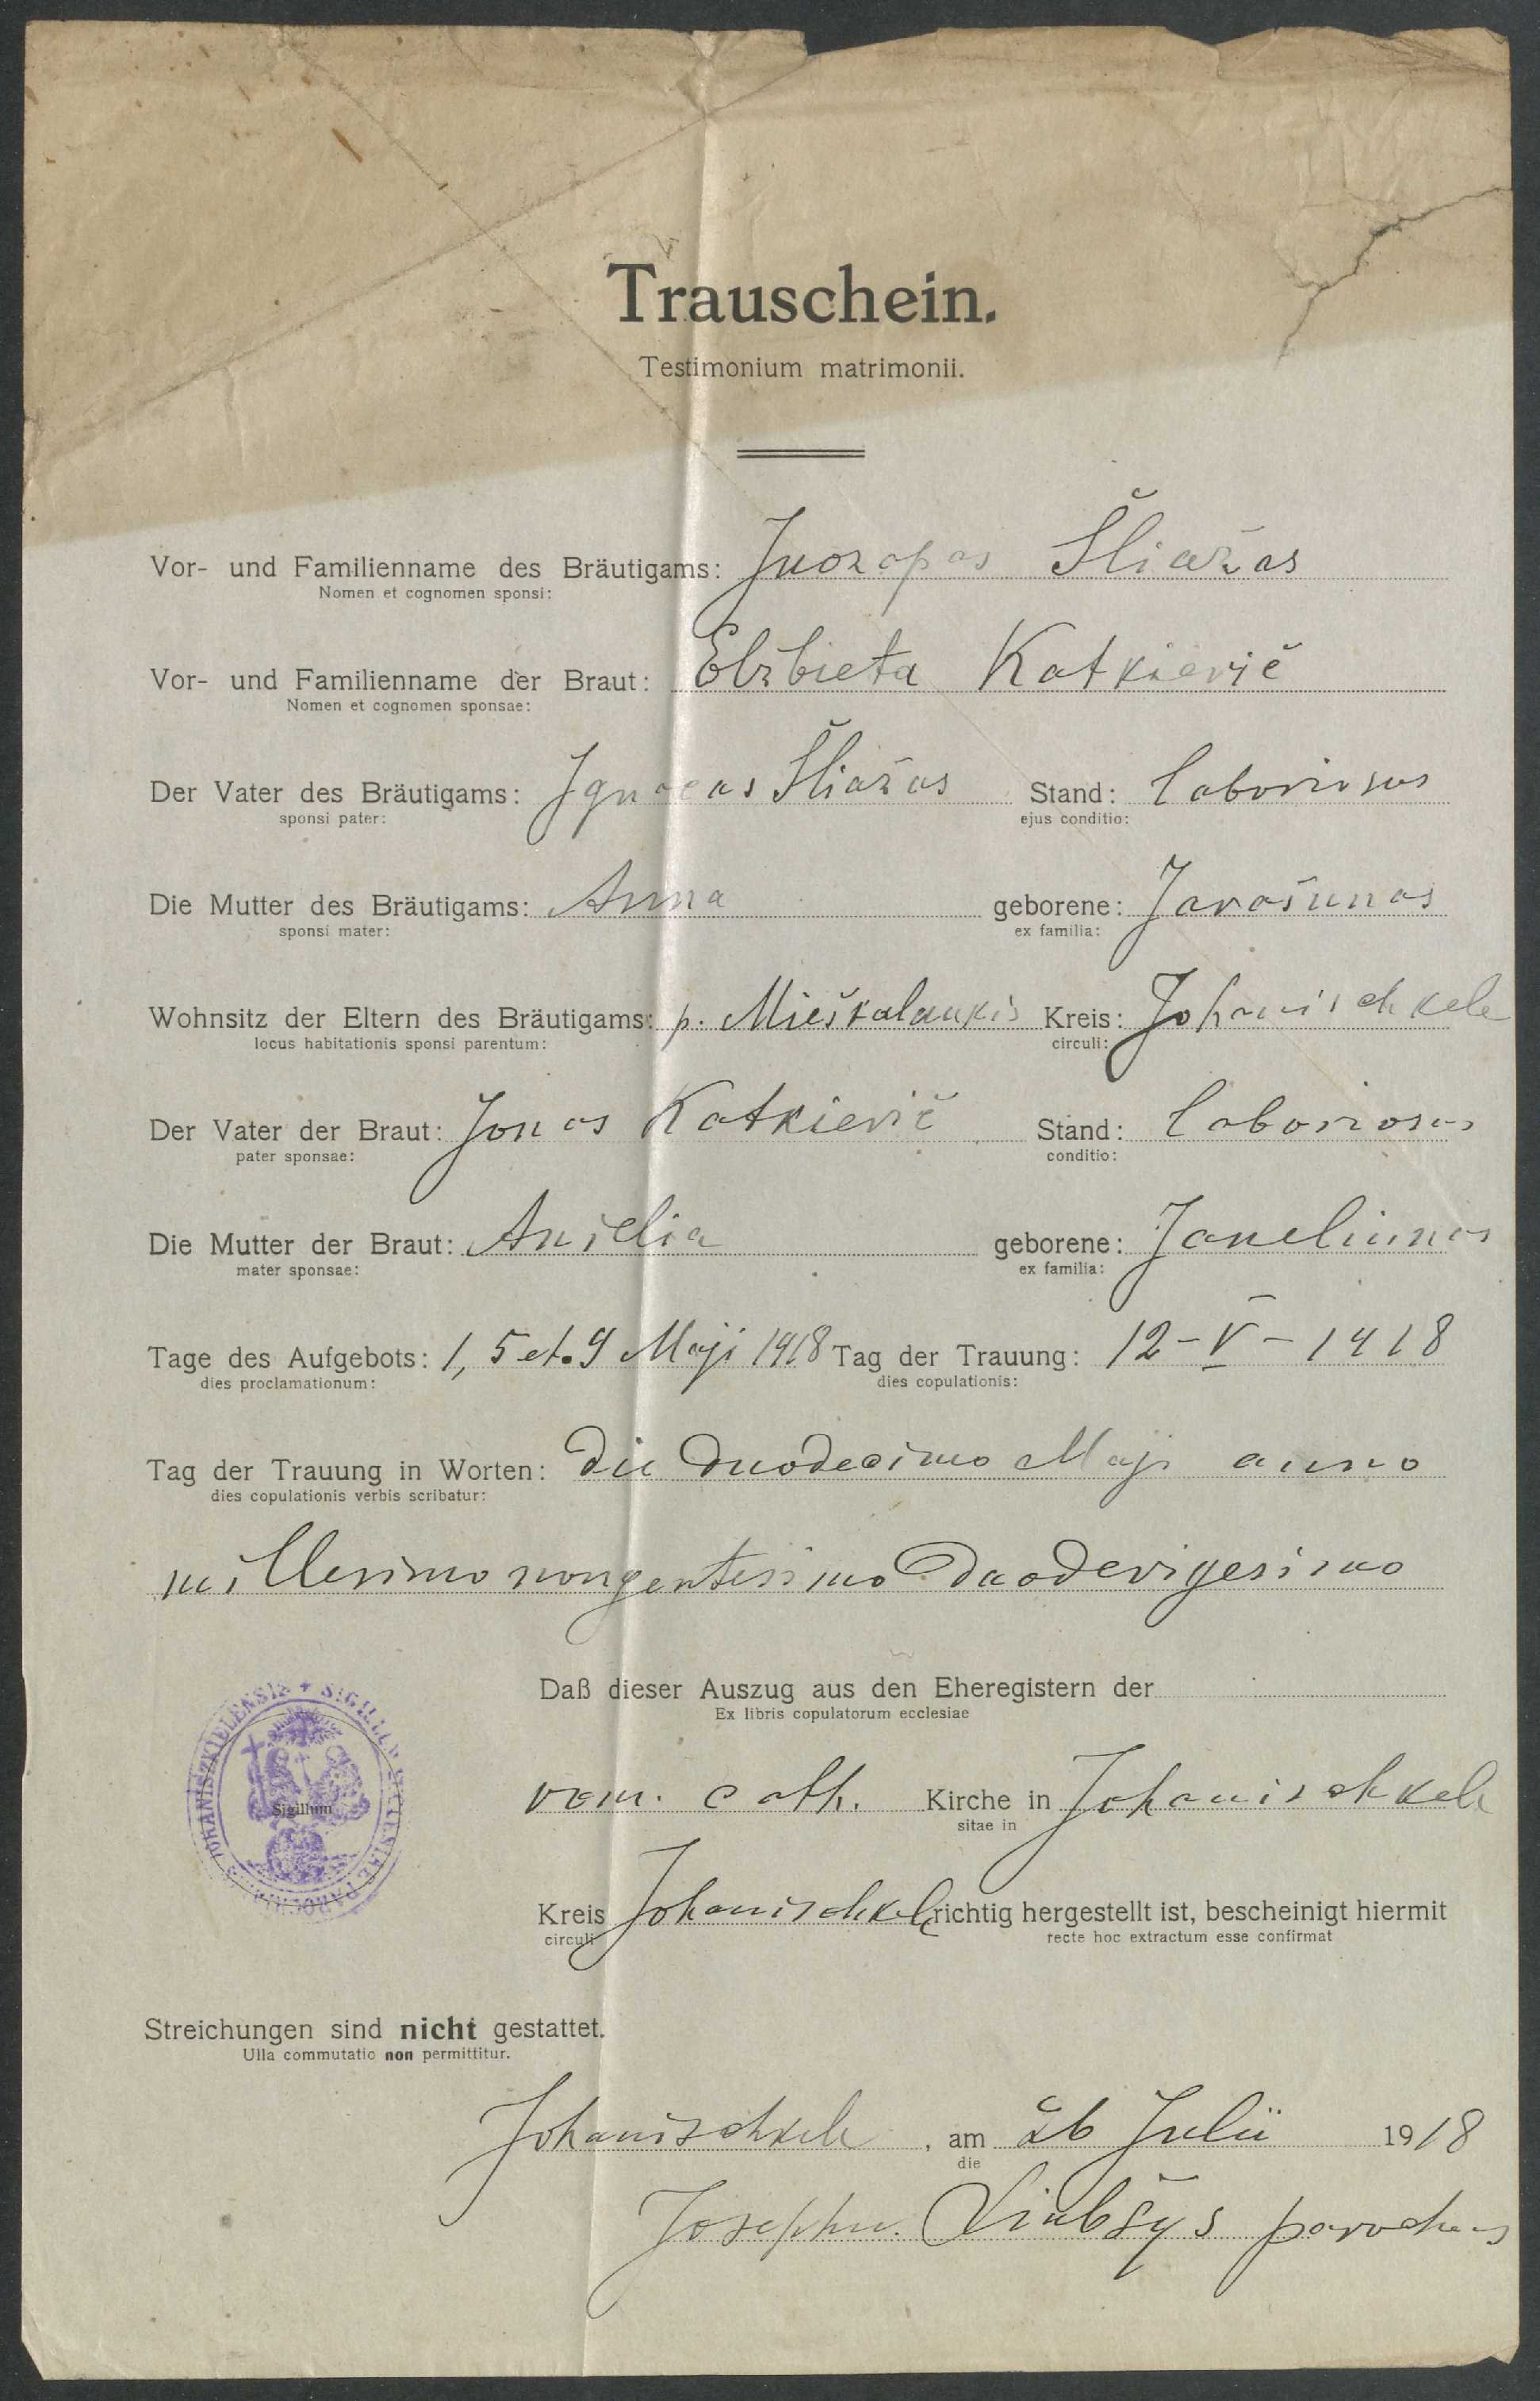 Trauschein.
Testimonium matrimonii.
Vor- und Familienname des Bräutigams: Juozapas Šliažas
Nomen et cognomen sponsi:
Vor- und Familienname der Braut: Elžbieta Katkievič
Nomen et cognomen sponsae:
Der Vater des Bräutigams: Ignacas Šliažas Stand: laboriosus
sponsi pater: ejus conditio:
Die Mutter des Bräutigams: Anna geborene: Jarašunas
sponsi mater: ex familia:
Wohnsitz der Eltern des Bräutigams: p. Mieškalaukis Kreis: Johanischkele
locus habitationis sponsi parentum: circuli:
Der Vater der Braut: Jonas Katkievič Stand: laboriosus
pater sponsae: conditio:
Die Mutter der Braut: Anielia geborene: Janeliunas
mater sponsae: ex familia:
Tage des Aufgebots: 1, 5 et. 9 Maji 1918 Tag der Trauung: 12-V-1918
dies proclamationum: dies copulationis:
Tag der Trauung in Worten: die duodecimo Maji anno
dies copulationis verbis scribatur:
millesimo nongentesimo duodevigesimo
Daß dieser Auszug aus den Eheregistern der
Ex libris copulatorum ecclesiae
rom. cath. Kirche in Johanischkele
sitae in
Kreis Johanischkele richtig hergestellt ist, bescheinigt hiermit
circuli recte hoc extractum esse confirmat
Sigillum
Streichungen sind nicht gestattet.
Ulla commutatio non permittitur.
Johanischkele, am 26 Julii 1918
die
Josephus parochus